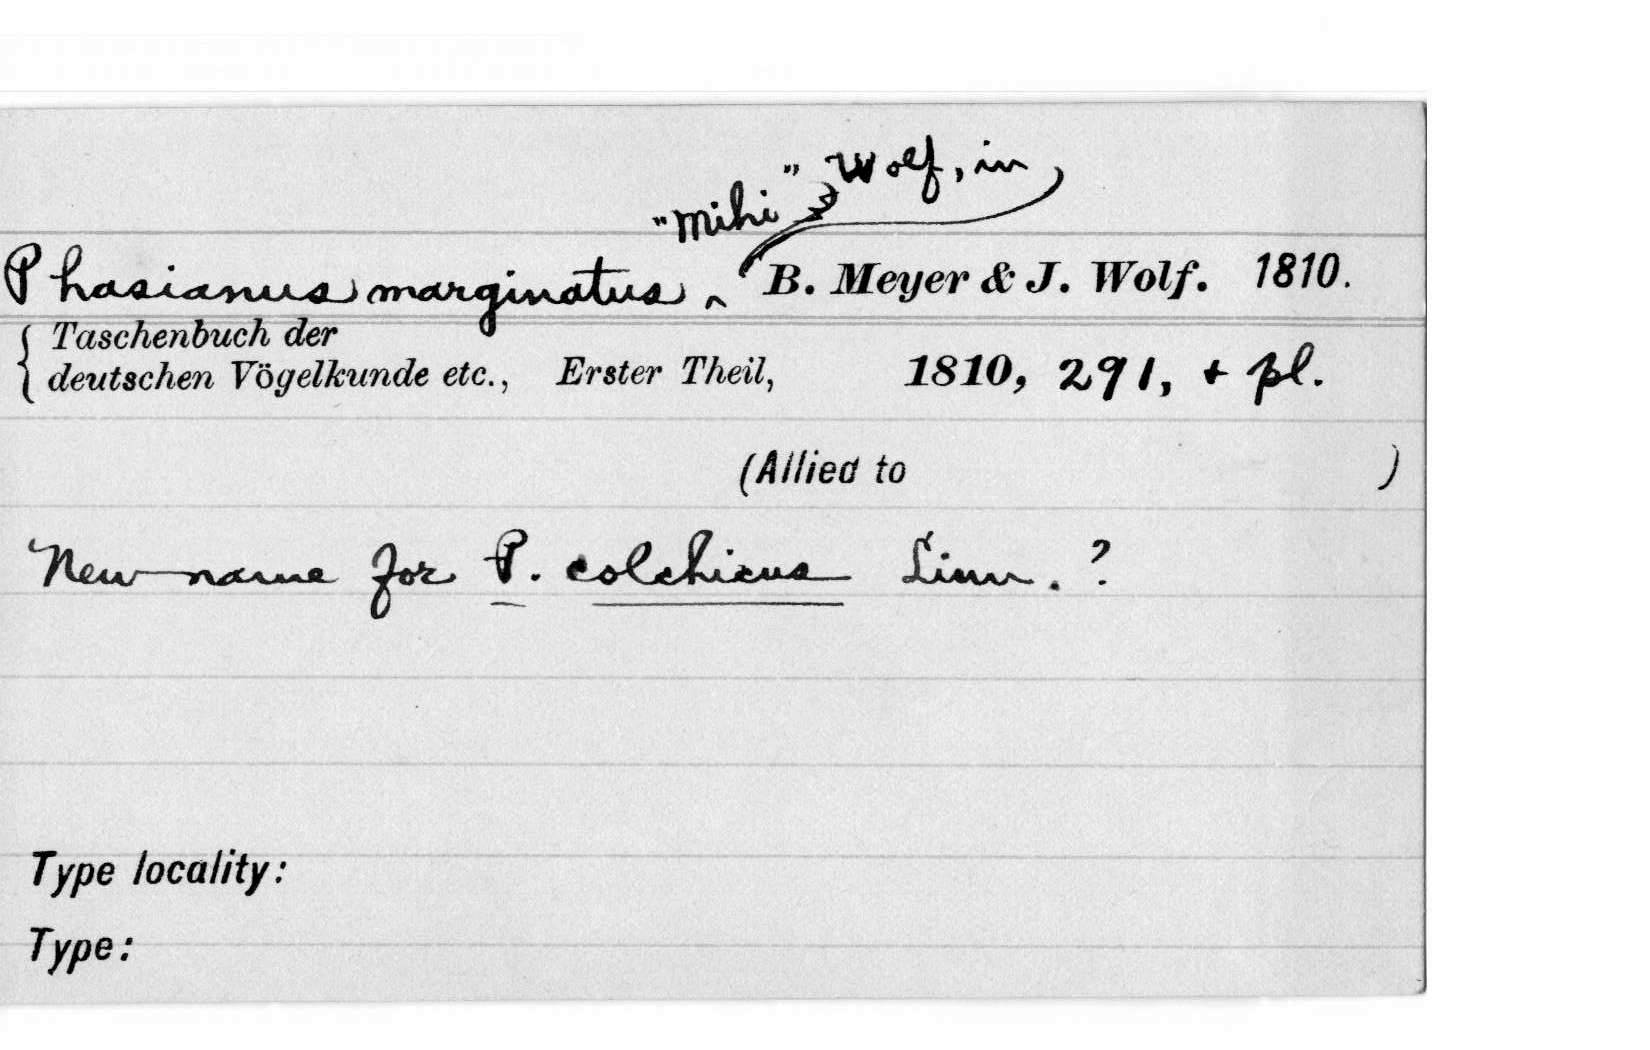 "Mihi" Wolf, in
Phasianus marginatus ^ B. Meyer & J. Wolf. 1810.
Taschenbuch der
deutschen Vögelkunde etc., Erster Theil, 1810, 291, + pl.
(Allied to )
New name for P. colchicus Linn. ?
Type locality:
Type: